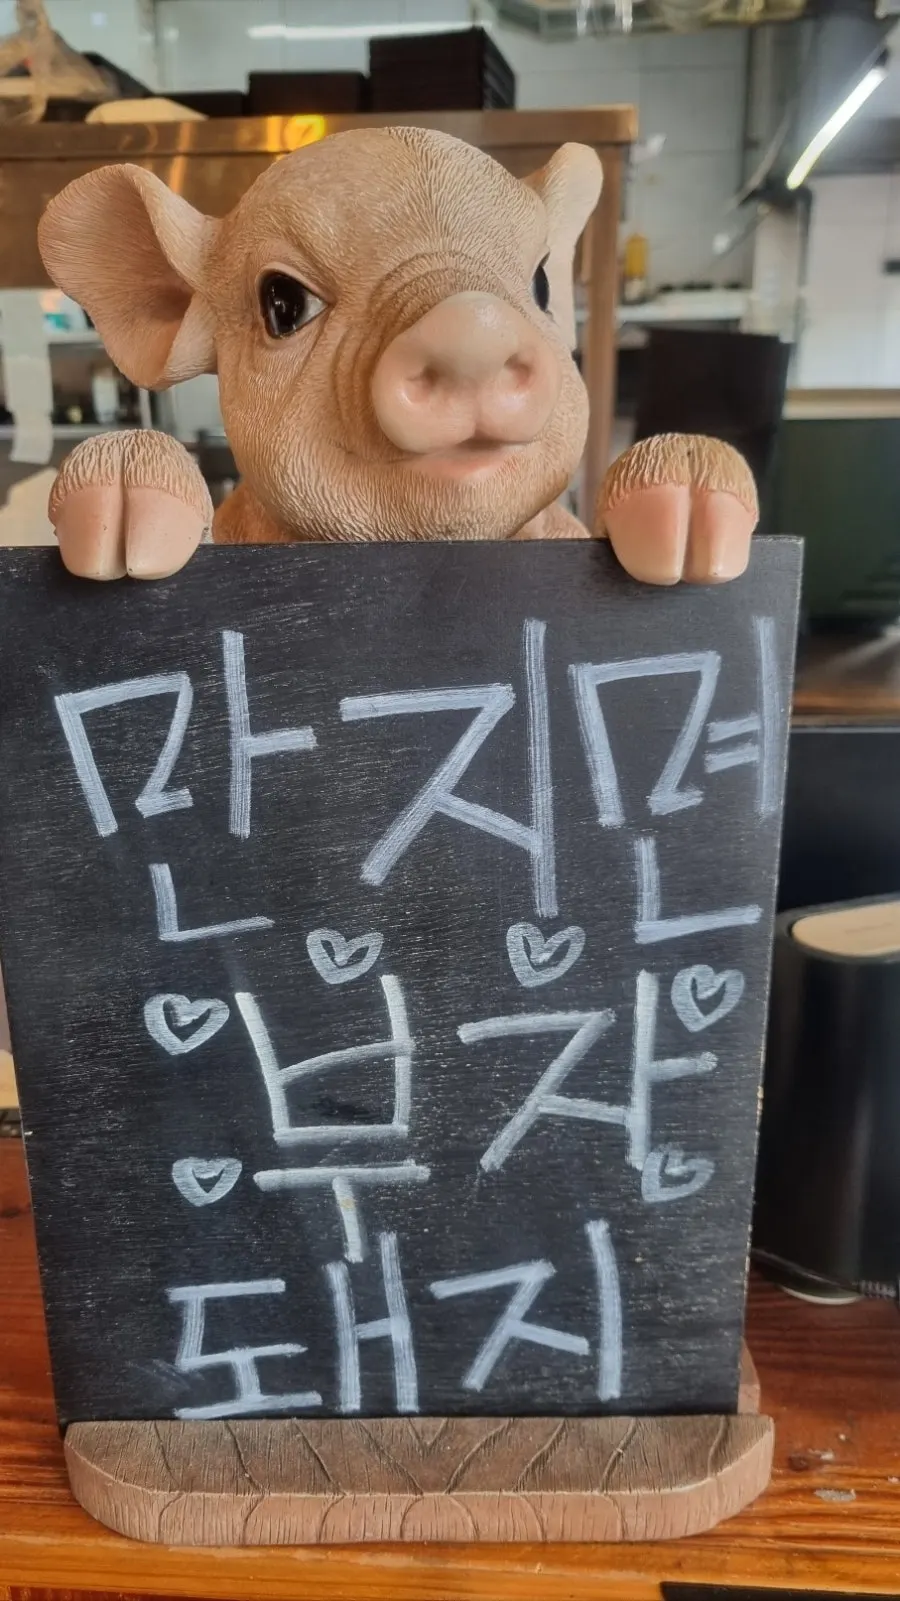 만지면
부자
돼지